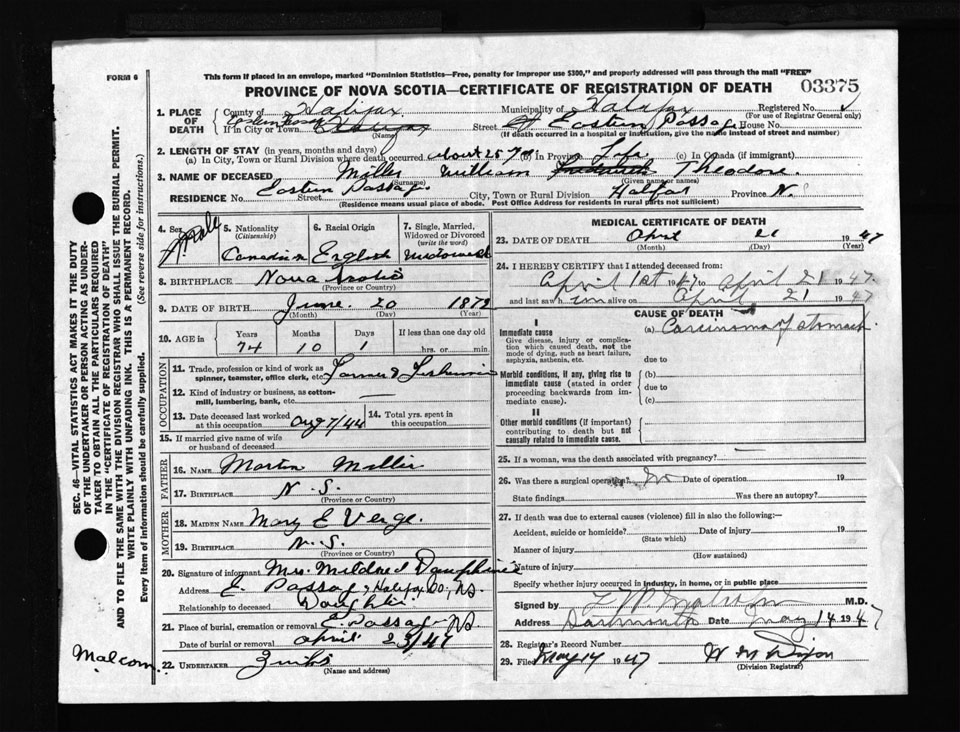 FORM 6
This form if placed in an envelope, marked "Dominion Statistics—Free, penalty for improper use $300," and properly addressed will pass through the mail "FREE"
PROVINCE OF NOVA SCOTIA—CERTIFICATE OF REGISTRATION OF DEATH
03375
1. PLACE OF DEATH
County of Halifax Municipality of Halifax Registered No.
(For use of Registrar General only)
If in City or Town Eastern Passage Halifax Street Eastern Passage House No.
(Name) (If death occurred in a hospital or institution, give the name instead of street and number)
2. LENGTH OF STAY (in years, months and days)
(a) In City, Town or Rural Division where death occurred about 25 yrs (b) In Province Life (c) In Canada (if immigrant)
3. NAME OF DECEASED Miller William Theodore.
(Surname) (Given name or names)
RESIDENCE No. Eastern Passage Street City, Town or Rural Division Halifax Province N.S
(Residence means usual place of abode. Post Office Address for residents in rural parts not sufficient)
4. Sex Male
5. Nationality (Citizenship) Canadian
6. Racial Origin English
7. Single, Married, Widowed or Divorced (write the word) Widowed
8. BIRTHPLACE Nova Scotia
(Province or Country)
9. DATE OF BIRTH June 20 1872
(Month) (Day) (Year)
10. AGE in Years Months Days If less than one day old
74 10 1 hrs. or min.
OCCUPATION
11. Trade, profession or kind of work as spinner, teamster, office clerk, etc. Farmer & Fisherman
12. Kind of industry or business, as cotton-mill, lumbering, bank, etc. —
13. Date deceased last worked at this occupation Aug 7/44
14. Total yrs. spent in this occupation
15. If married give name of wife or husband of deceased
FATHER
16. NAME Martin Miller
17. BIRTHPLACE N.S.
(Province or Country)
MOTHER
18. MAIDEN NAME Mary E Verge.
19. BIRTHPLACE N.S.
(Province or Country)
20. Signature of informant Mrs. Mildred Dauphinee
Address E. Passage, Halifax Co., N.S.
Relationship to deceased Daughter
21. Place of burial, cremation or removal E. Passage N.S.
Date of burial or removal April 23/47
22. UNDERTAKER Zinks
(Name and address)
Malcom
MEDICAL CERTIFICATE OF DEATH
23. DATE OF DEATH April 21 1947
(Month) (Day) (Year)
24. I HEREBY CERTIFY that I attended deceased from:
April 1st 1947 to April 21 1947.
and last saw him alive on April 21 1947
CAUSE OF DEATH
I
Immediate cause
Give disease, injury or complication which caused death, not the mode of dying, such as heart failure, asphyxia, asthenia, etc.
(a) Carcinoma of stomach.
due to
Morbid conditions, if any, giving rise to immediate cause (stated in order proceeding backwards from immediate cause).
(b)
due to
(c)
II
Other morbid conditions (if important) contributing to death but not causally related to immediate cause.
25. If a woman, was the death associated with pregnancy? —
26. Was there a surgical operation? No Date of operation 19
State findings Was there an autopsy?
27. If death was due to external causes (violence) fill in also the following:—
Accident, suicide or homicide? Date of injury 19
(State which)
Manner of injury
(How sustained)
Nature of injury
Specify whether injury occurred in industry, in home, or in public place
Signed by M.D.
Address Dartmouth Date May 14 1947
28. Registrar's Record Number
29. Filed May 14 1947 W M Dixon
(Division Registrar)
SEC. 46—VITAL STATISTICS ACT MAKES IT THE DUTY
OF THE UNDERTAKER OR PERSON ACTING AS UNDERTAKER TO OBTAIN ALL THE PARTICULARS REQUIRED
IN THE "CERTIFICATE OF REGISTRATION OF DEATH"
AND TO FILE THE SAME WITH THE DIVISION REGISTRAR WHO SHALL ISSUE THE BURIAL PERMIT.
WRITE PLAINLY WITH UNFADING INK. THIS IS A PERMANENT RECORD.
Every item of information should be carefully supplied. (See reverse side for instructions.)